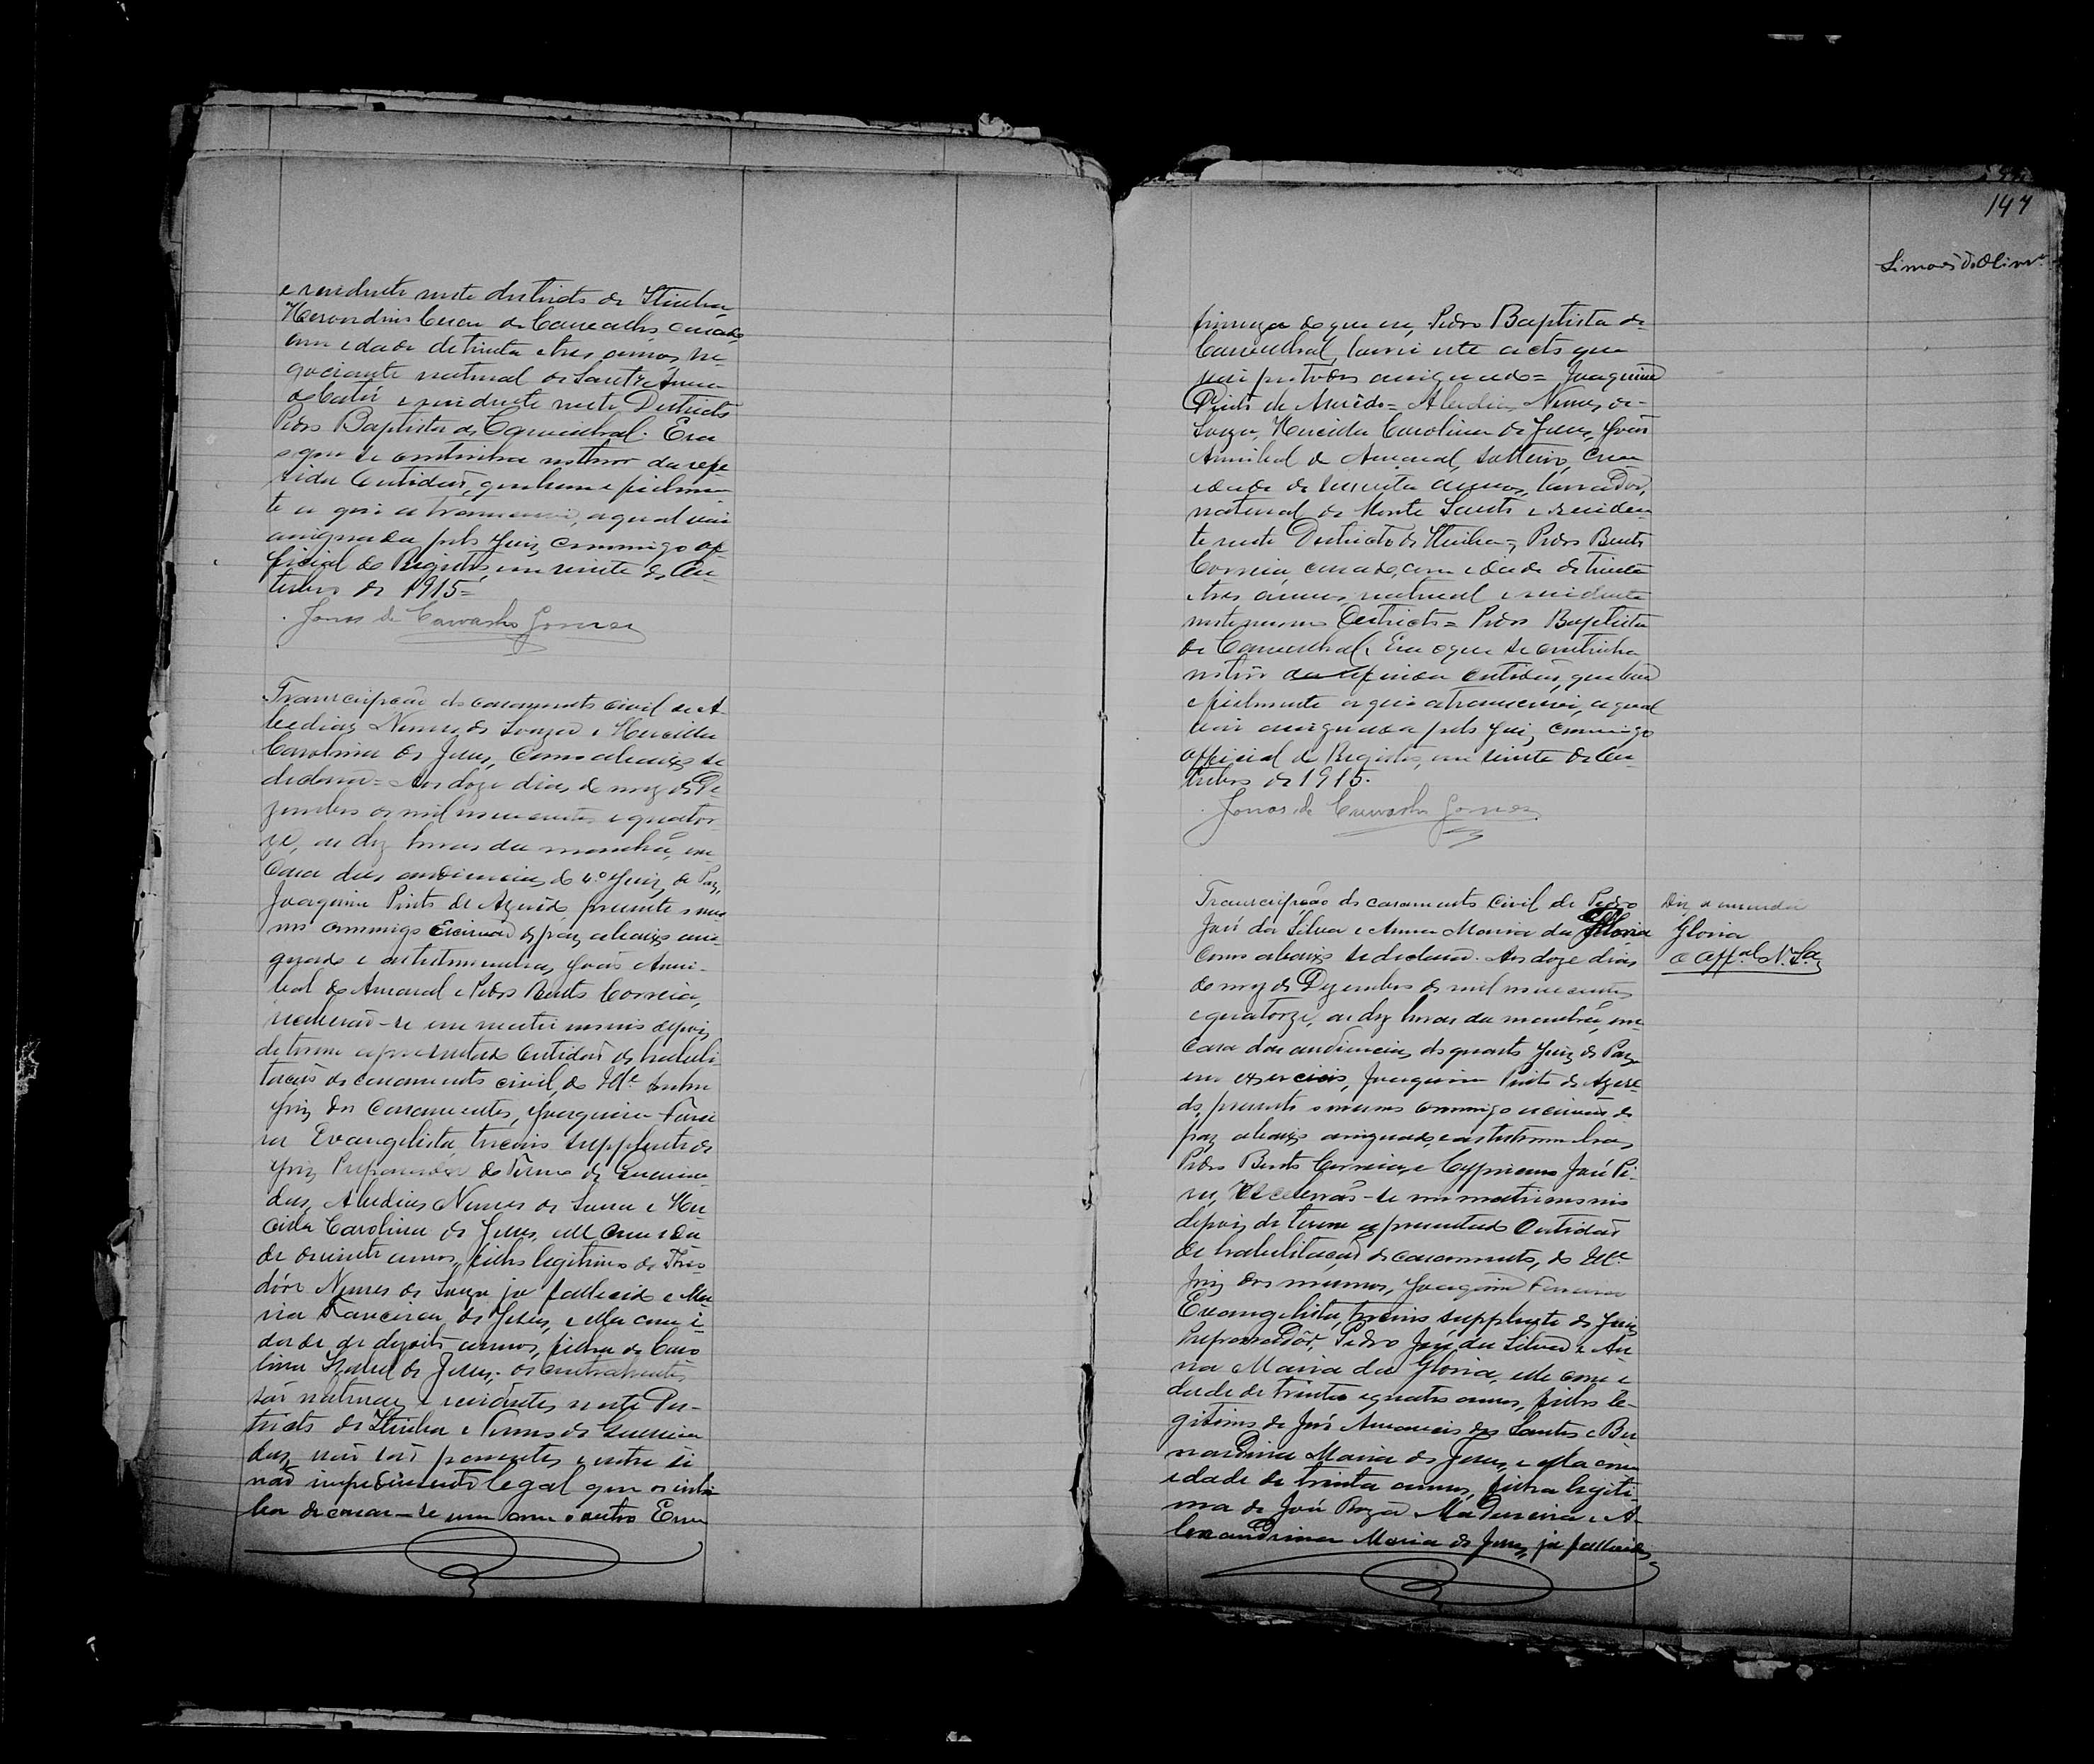 e residente neste districto de Itiuba,
Carvalho, casado
com edade de trinta e tres annos, ne-
gociante natural de Sant'Anna
do Catú e residente neste Districto
Pedro Baptista de Carvalhal. Era
o que se continha no theor da refe
rida Certidão, que bem e fielmen
te a qui a transcrevi, a qual vai
assignada pelo Juiz commigo of
ficial do Registro, em vinte de Ou
tubro de 1915=
Jonas de Carvalho Gomes
Transcripção do casamento civil de A-
Nunes de Souza e Hercilia
Carolina de Jesus, como abaixo se
declara= Aos doze dias do mez de De
zembro de mil novecentos e quator-
ze, as dez horas da manhã, em
casa das audiencias do 4.º Juiz de Paz,
Joaquim Pinto de Azevêdo, presente o mes
mo commigo Escrivão de paz abaixo assi
gnado e as testemunhas, João Anni-
bal do Amaral e Pedro Bento Correia,
receberão-se em matrimonio depois
de terem apresentado Certidão de habili
tação de casamento civil, do Ill.e Senhor
Juiz dos Casamentos, Joaquim Ferrei
ra Evangelista, terceiro supplente do
Juiz Preparador do Termo de Queima
das, Nunes de Souza e Her
cilia Carolina de Jesus, elle com eda
de de vinte annos, filho legitimo de Theo
dóro Nunes de Souza já fallecido e Ma
ria Francisca de Jesus, e ella com i-
dade de dezoito annos, filha de Caro
lina Izabel de Jesus. os contrahentes
são naturaes e residentes neste Dis-
tricto de Itiuba e Termo de Queima
das, não são parentes e entre si
não impedimento legal que os inhi
ba de casar-se um com o outro Em
147
Simões d'Oliv.ra
firmeza do que eu, Pedro Baptista de
Carvalhal, lavrei este acto que
vai por todos assignado= Joaquim
Pinto de Azevêdo= Nunes de
Souza, Hercilia Carolina de Jesus, João
Annibal do Amaral, solteiro, com
edade de annos, lavrador,
natural de Monte Santo e residen
te neste Districto de Itiuba=, Pedro Bento
Correia, casado, com edade de trinta
e tres annos, natural e residente
neste mesmo Districto= Pedro Baptista
de Carvalhal. Era o que se continha
no theor da referida Certidão, que bem
e fielmente a qui a transcrevi, a qual
vai assignada pelo Juiz commigo
official do Registro, em vinte de Ou-
tubro de 1915.
Jonas de Carvalho Gomes
Transcripção do casamento civil de Pedro
José da Silva e Anna Maria da Gloria
como abaixo se declara. Aos doze dias
do mez de Dezembro de mil novecentos
e quatorze, as dez horas da manhã, em
casa das audiencias do quarto Juiz de Paz
em exercicio, Joaquim Pinto de Azeve-
do, presente o mesmo commigo escrivão de
paz abaixo assignado, e as testemunhas,
Pedro Bento Correia, e Cypriano José Pi-
res, receberão-se em matrimonio
depois de terem apresentado Certidão
de habilitação de casamento, do Ill.e
Juiz dos mesmos, Joaquim Ferreira
Evangelista, terceiro supplente do Juiz
Preparadôr, Pedro José da Silva e An
na Maria da Gloria, elle com e
dade de trinta e quatro annos, filho le-
gitimo de José Amancio dos Santos e Ber
nardina Maria de Jesus, e ella com
edade de trinta annos, filha legiti-
ma de José Madureira e A-
lexandrina Maria de Jesus, já fallecidos
Diz a emenda
Gloria
O Off.al